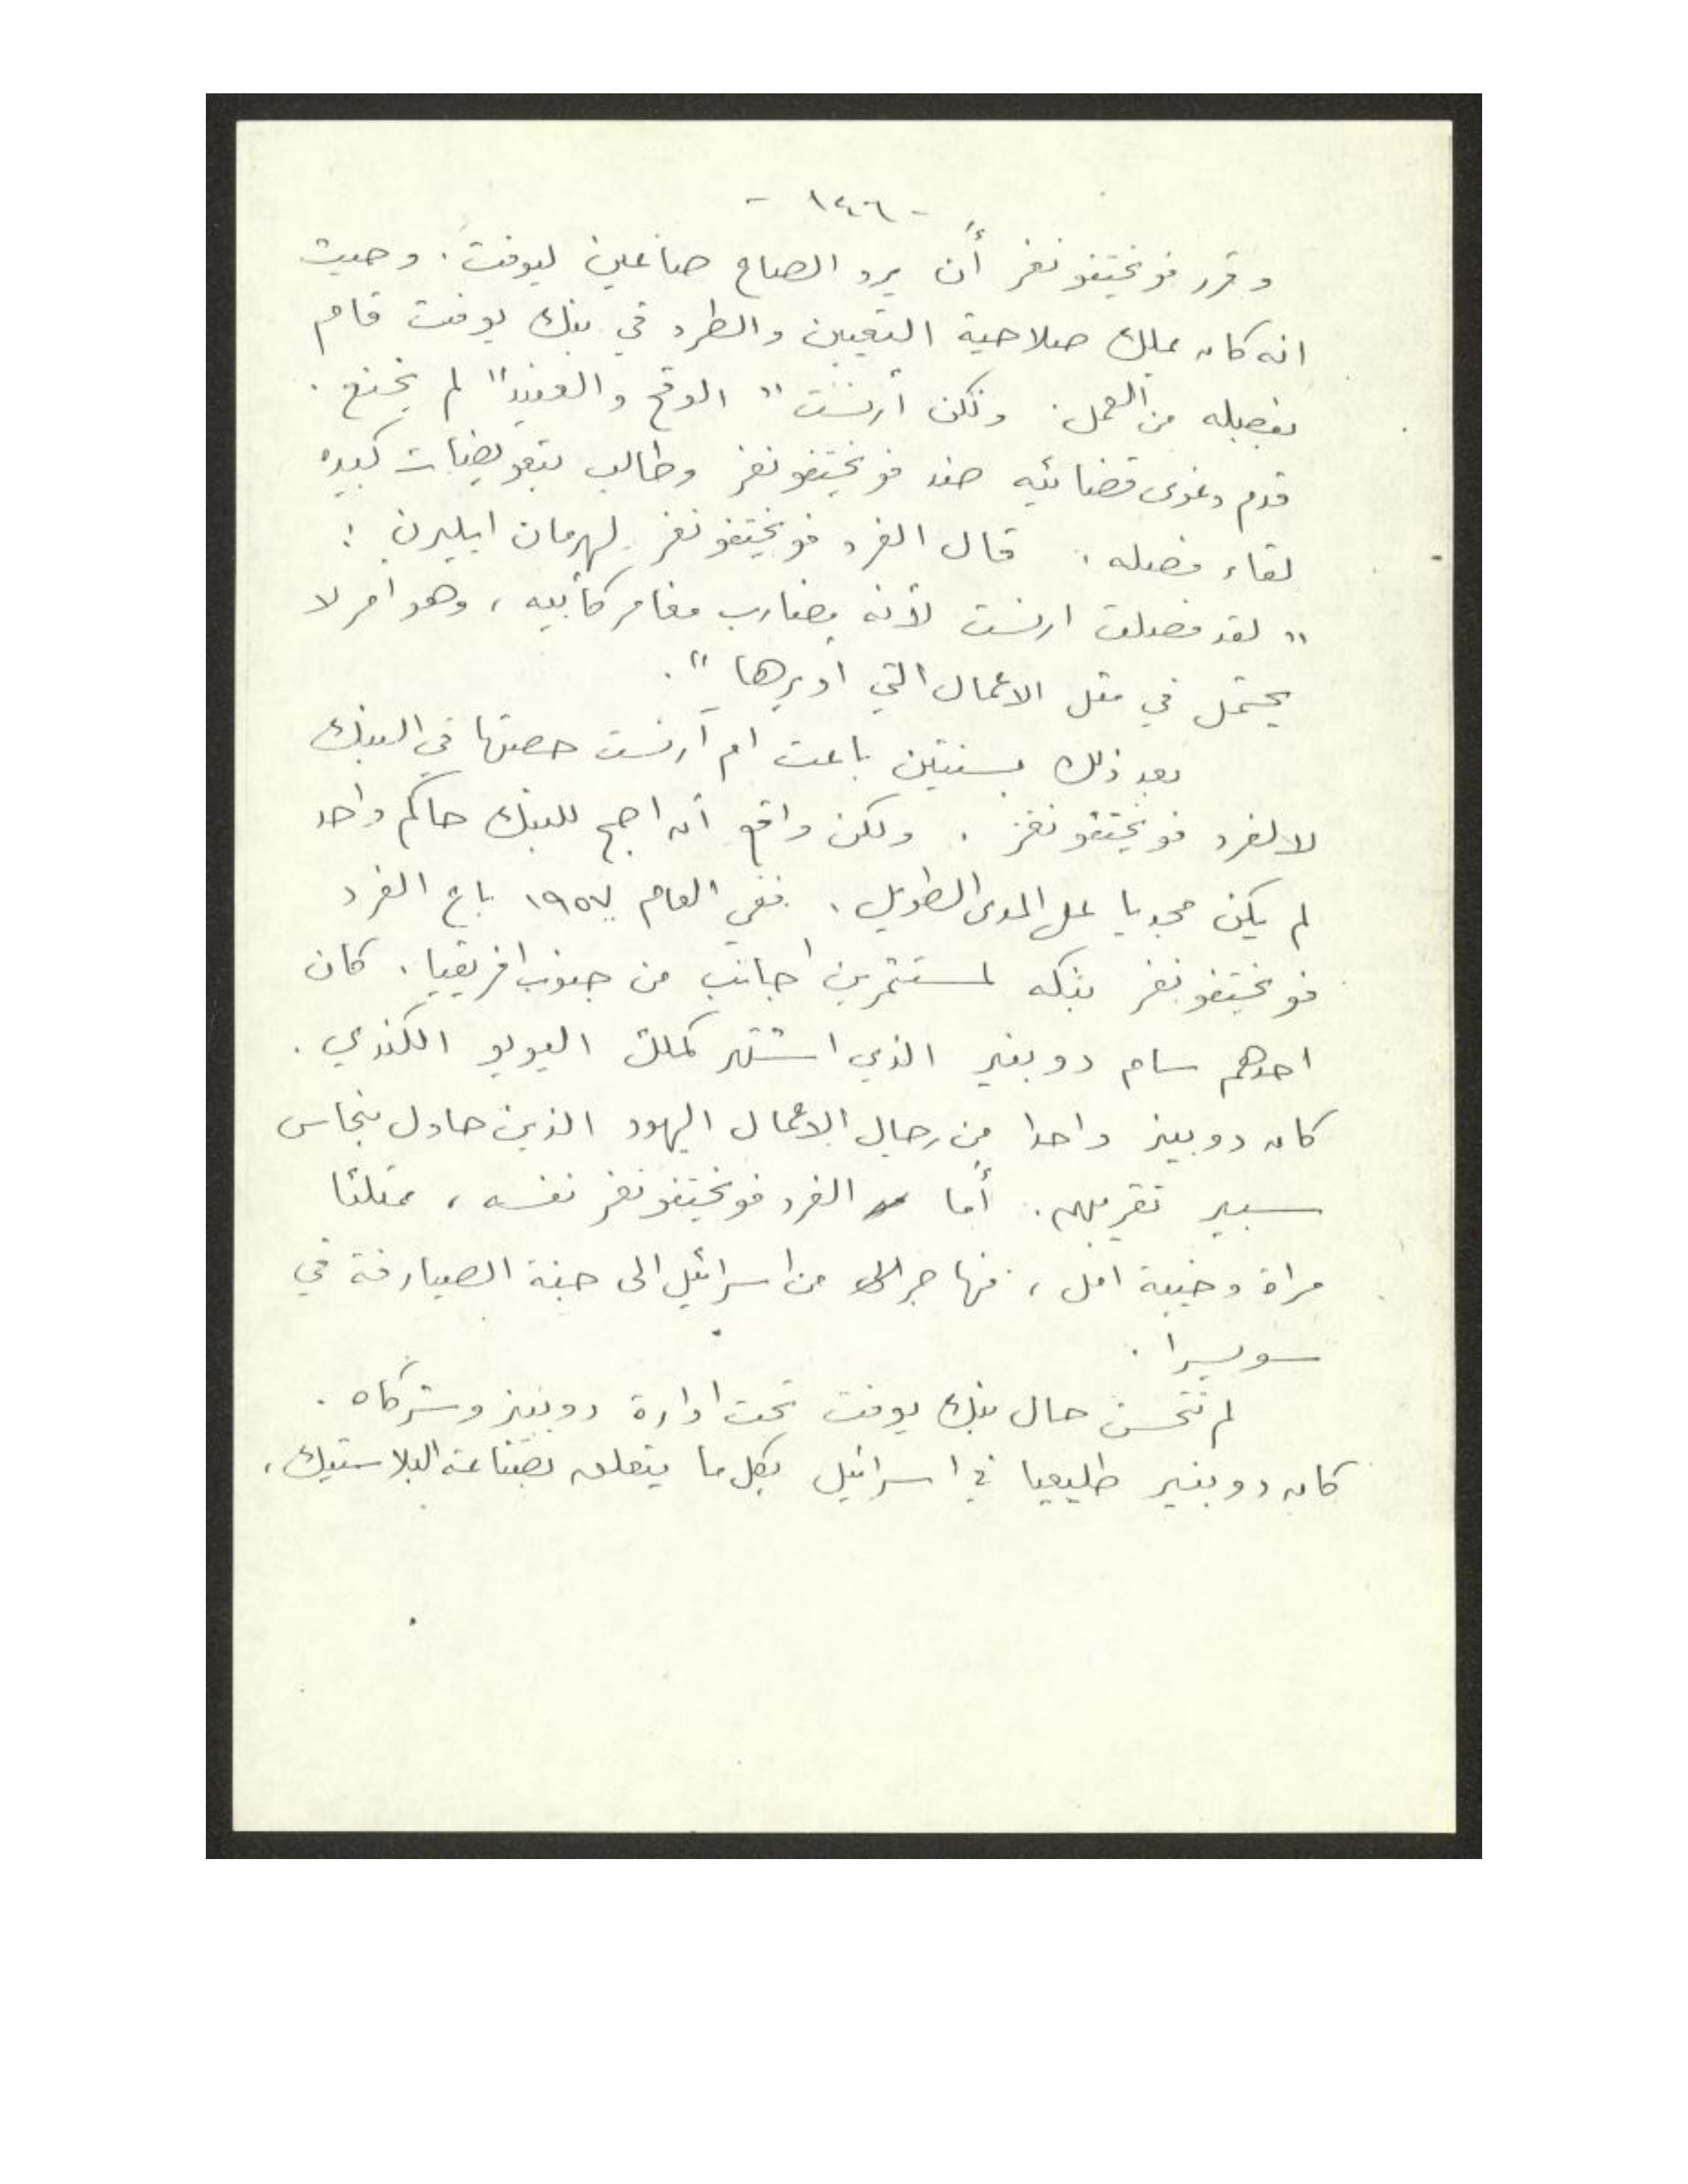 - ١٤٦ -
وقرر فويختفونغر أن يرد الصاع صاعين ليوفت. وحيث
انه كان يملك صلاحية التعيين والطرد في بنك يوفت قام
بفصله من العمل. ولكن أرنست "الوقح والعنيد" لم يخنع.
قدم دعوى قضائيه ضد فويختفونغر وطالب بتعويضات كبيره
لقاء فصله. قال الفرد فويختفونغر لهرمان ايليرن :
" لقد فصلت ارنست لأنه مضارب مغامر كأبيه ، وهو امر لا
يحتمل في مثل الاعمال التي اديرها ".
بعد ذلك بسنتين باعت ام أرنست حصتها في البنك
لالفرد فويختفونغر . ولكن واقع أنه اصبح للبنك حاكم واحد
لم يكن مجديا على المدى الطويل. ففي العام ١٩٥٧ باع الفرد
فويختفونغر بنكه لمستثمرين اجانب من جنوب افريقيا. كان
احدهم سام دوبنير الذي اشتهر كملك اليويو الكندي.
كان دوبينر واحدا من رجال الاعمال اليهود الذين حاول بنحاس
سبير تقريبهم. أما الفرد فويختفونغر نفسه ، ممتلئا
مراة وخيبة امل ، فهاجر من اسرائيل الى جنة الصيارفة في
سويسرا .
لم تتحسن حال بنك يوفت تحت ادارة دوبنير وشركاه .
كان دوبنير طليعيا في اسرائيل بكل ما يتعلق بصناعة البلاستيك،